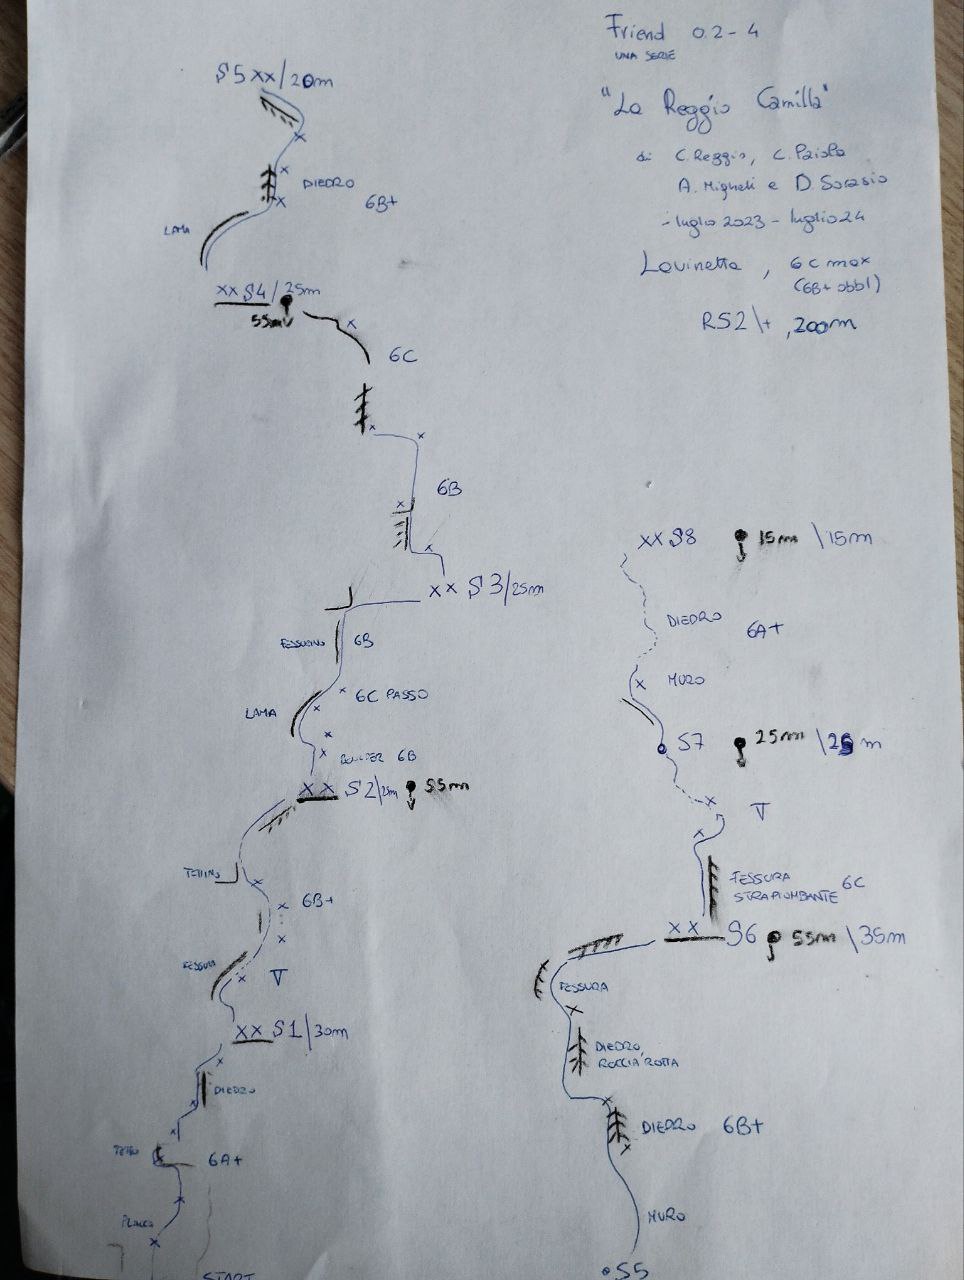 Friend 0.2-4
UNA SERIE
"La Reggio Camilla"
di C. Reggio, C. Paiola
A. Migheli e D. Sorasio
- luglio 2023 - luglio 24
Lavinetta, 6c max
(6B+ obbl)
RS2\+, 200m
S5 xx/20m
DIEDRO
6B+
LAMA
xx S4/25m
55m
6C
6B
xx S3/25m
FESSURINO 6B
6C PASSO
LAMA
BOULDER 6B
xx S2\25m 55m
TETTINO
6B+
FESSURA
V
xx S1/30m
DIEDRO
TETTO
6A+
PLACCA
START
xx S8 15m \15m
DIEDRO 6A+
MURO
S7 25m \25m
V
FESSURA 6C
STRAPIOMBANTE
xx S6 55m \35m
FESSURA
DIEDRO
ROCCIA ROTTA
DIEDRO 6B+
MURO
S5